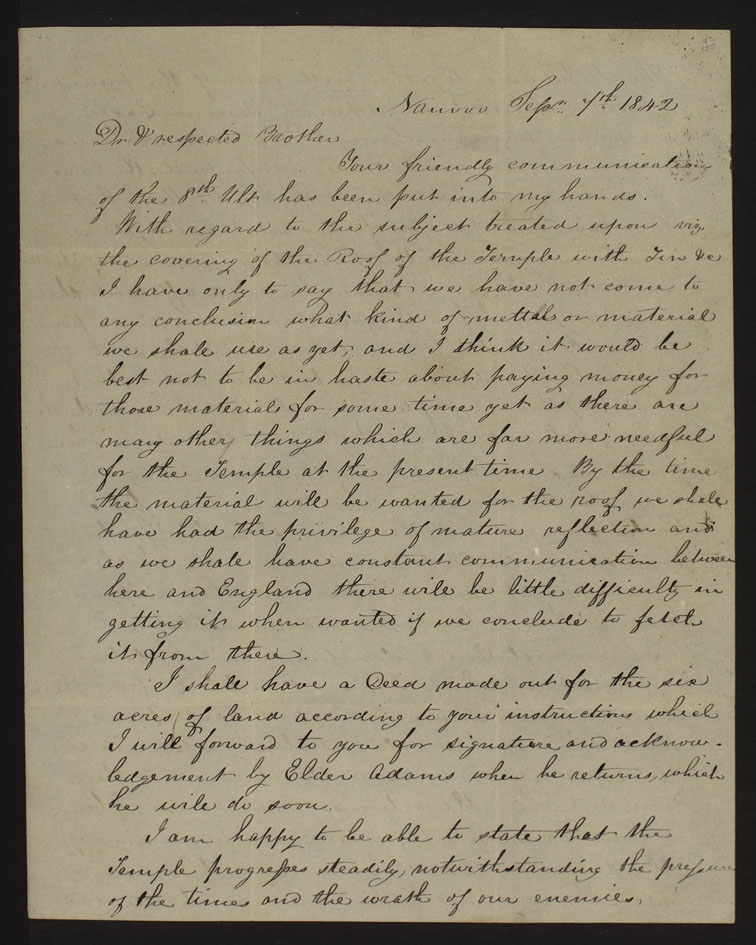 Nauvoo Sepr. 7th 1842
Dr & respected Brother
Your friendly communication
of the 8th Ult has been put into my hands.
With regard to the subject treated upon viz.
the covering of the Roof of the Temple with Tin &c
I have only to say that we have not come to
any conclusion what kind of mettal or material
we shall use as yet, and I think it would be
best not to be in haste about paying money for
those materials for some time yet as there are
many other things which are far more needful
for the Temple at the present time. By the time
the material will be wanted for the roof we shall
have had the privilege of mature reflection and
as we shall have constant communication between
here and England there will be little difficulty in
getting it when wanted if we conclude to fetch
it from there.
I shall have a Deed made out for the six
acres of land according to your instructions which
I will forward to you for signature and acknow-
ledgement by Elder Adams when he returns, which
he will do soon.
I am happy to be able to state that the
Temple progresses steadily, notwithstanding the pressure
of the times and the wrath of our enemies.